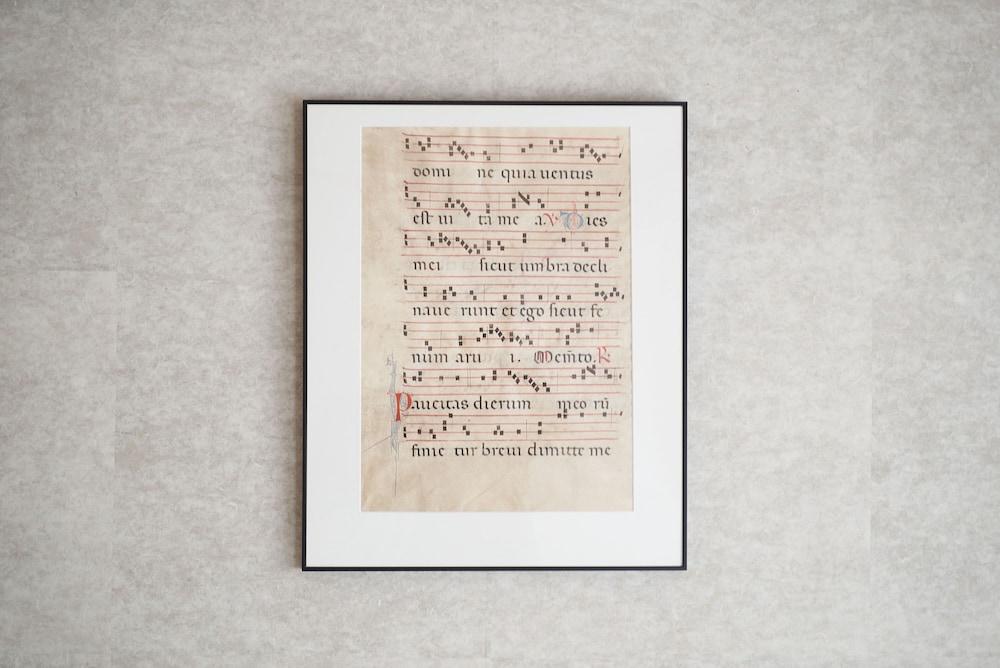 domi ne quia uentus
est ui ta me a. V Dies
mei sicut umbra decli
naue runt et ego sicut fe
num aru i. Mem̄to. R
Paucitas dierum meo rū
finie tur breui dimitte me